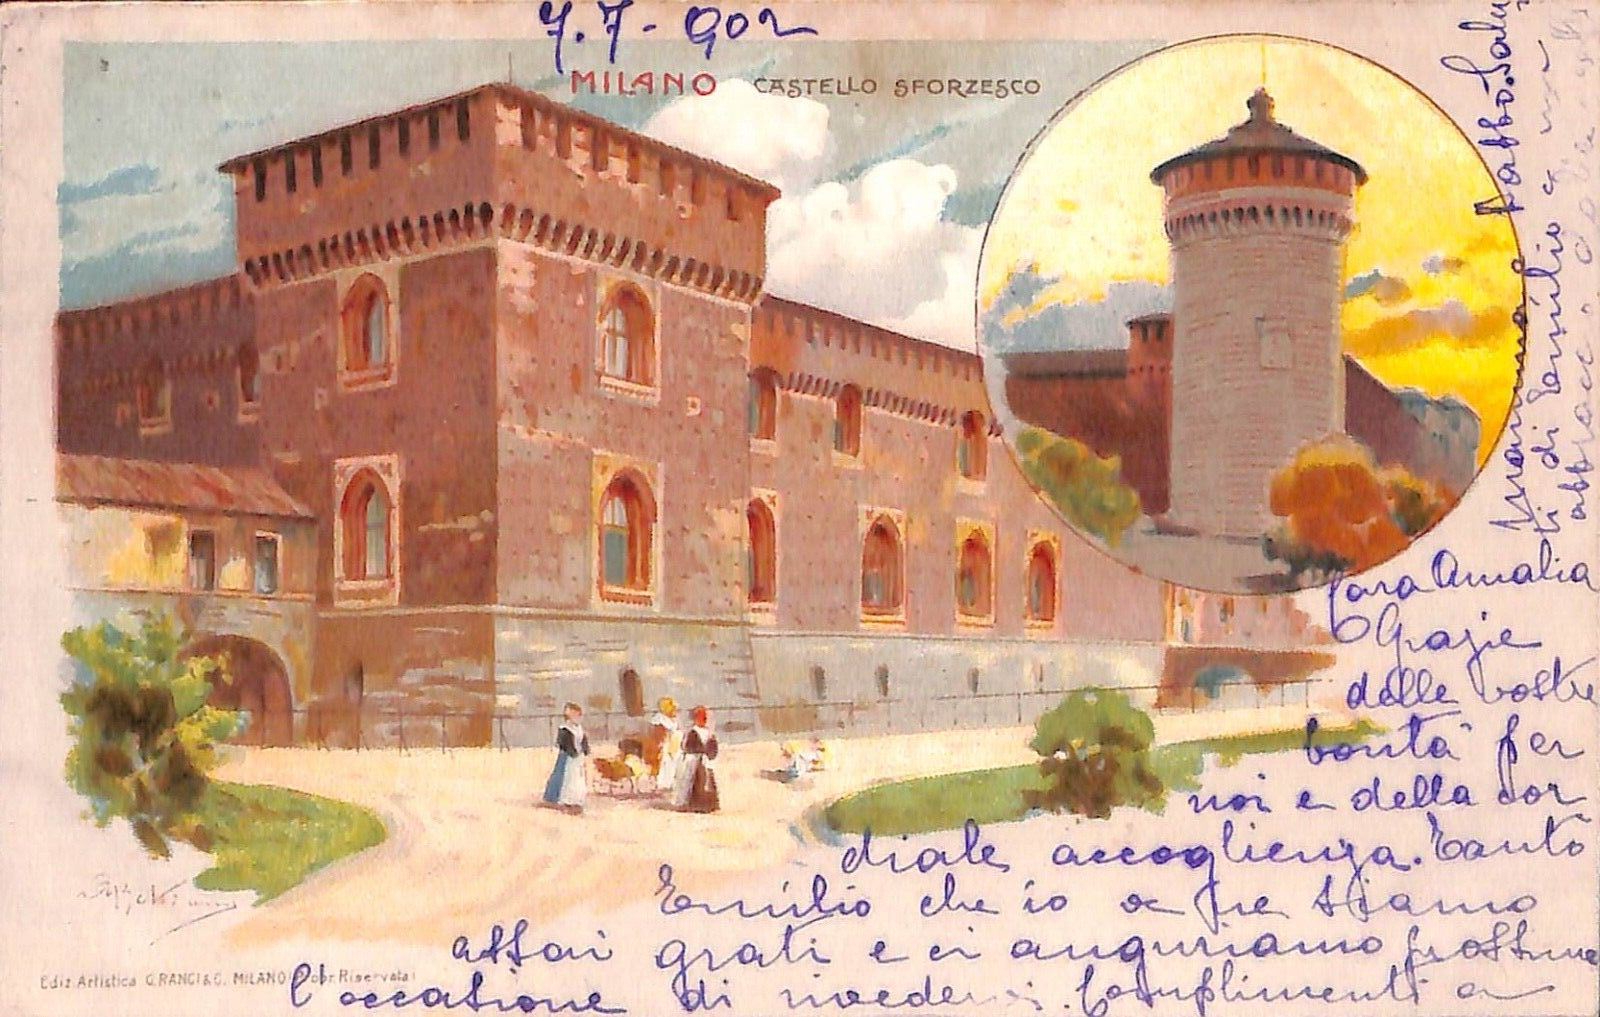 7.7-902
MILANO CASTELLO SFORZESCO
Cara Amalia
Grazie
delle vostre
bontà per
noi e della cor
diale accoglienza. Tanto
Emilio che io a te siamo
assai grati e ci auguriamo prossima
l'occasione di rivedervi. Complimenti a
Mamma e Babbo. Saluti
di Emilio e una
abbracc
Ediz. Artistica G. RANCI & C. MILANO Propr. Riservata